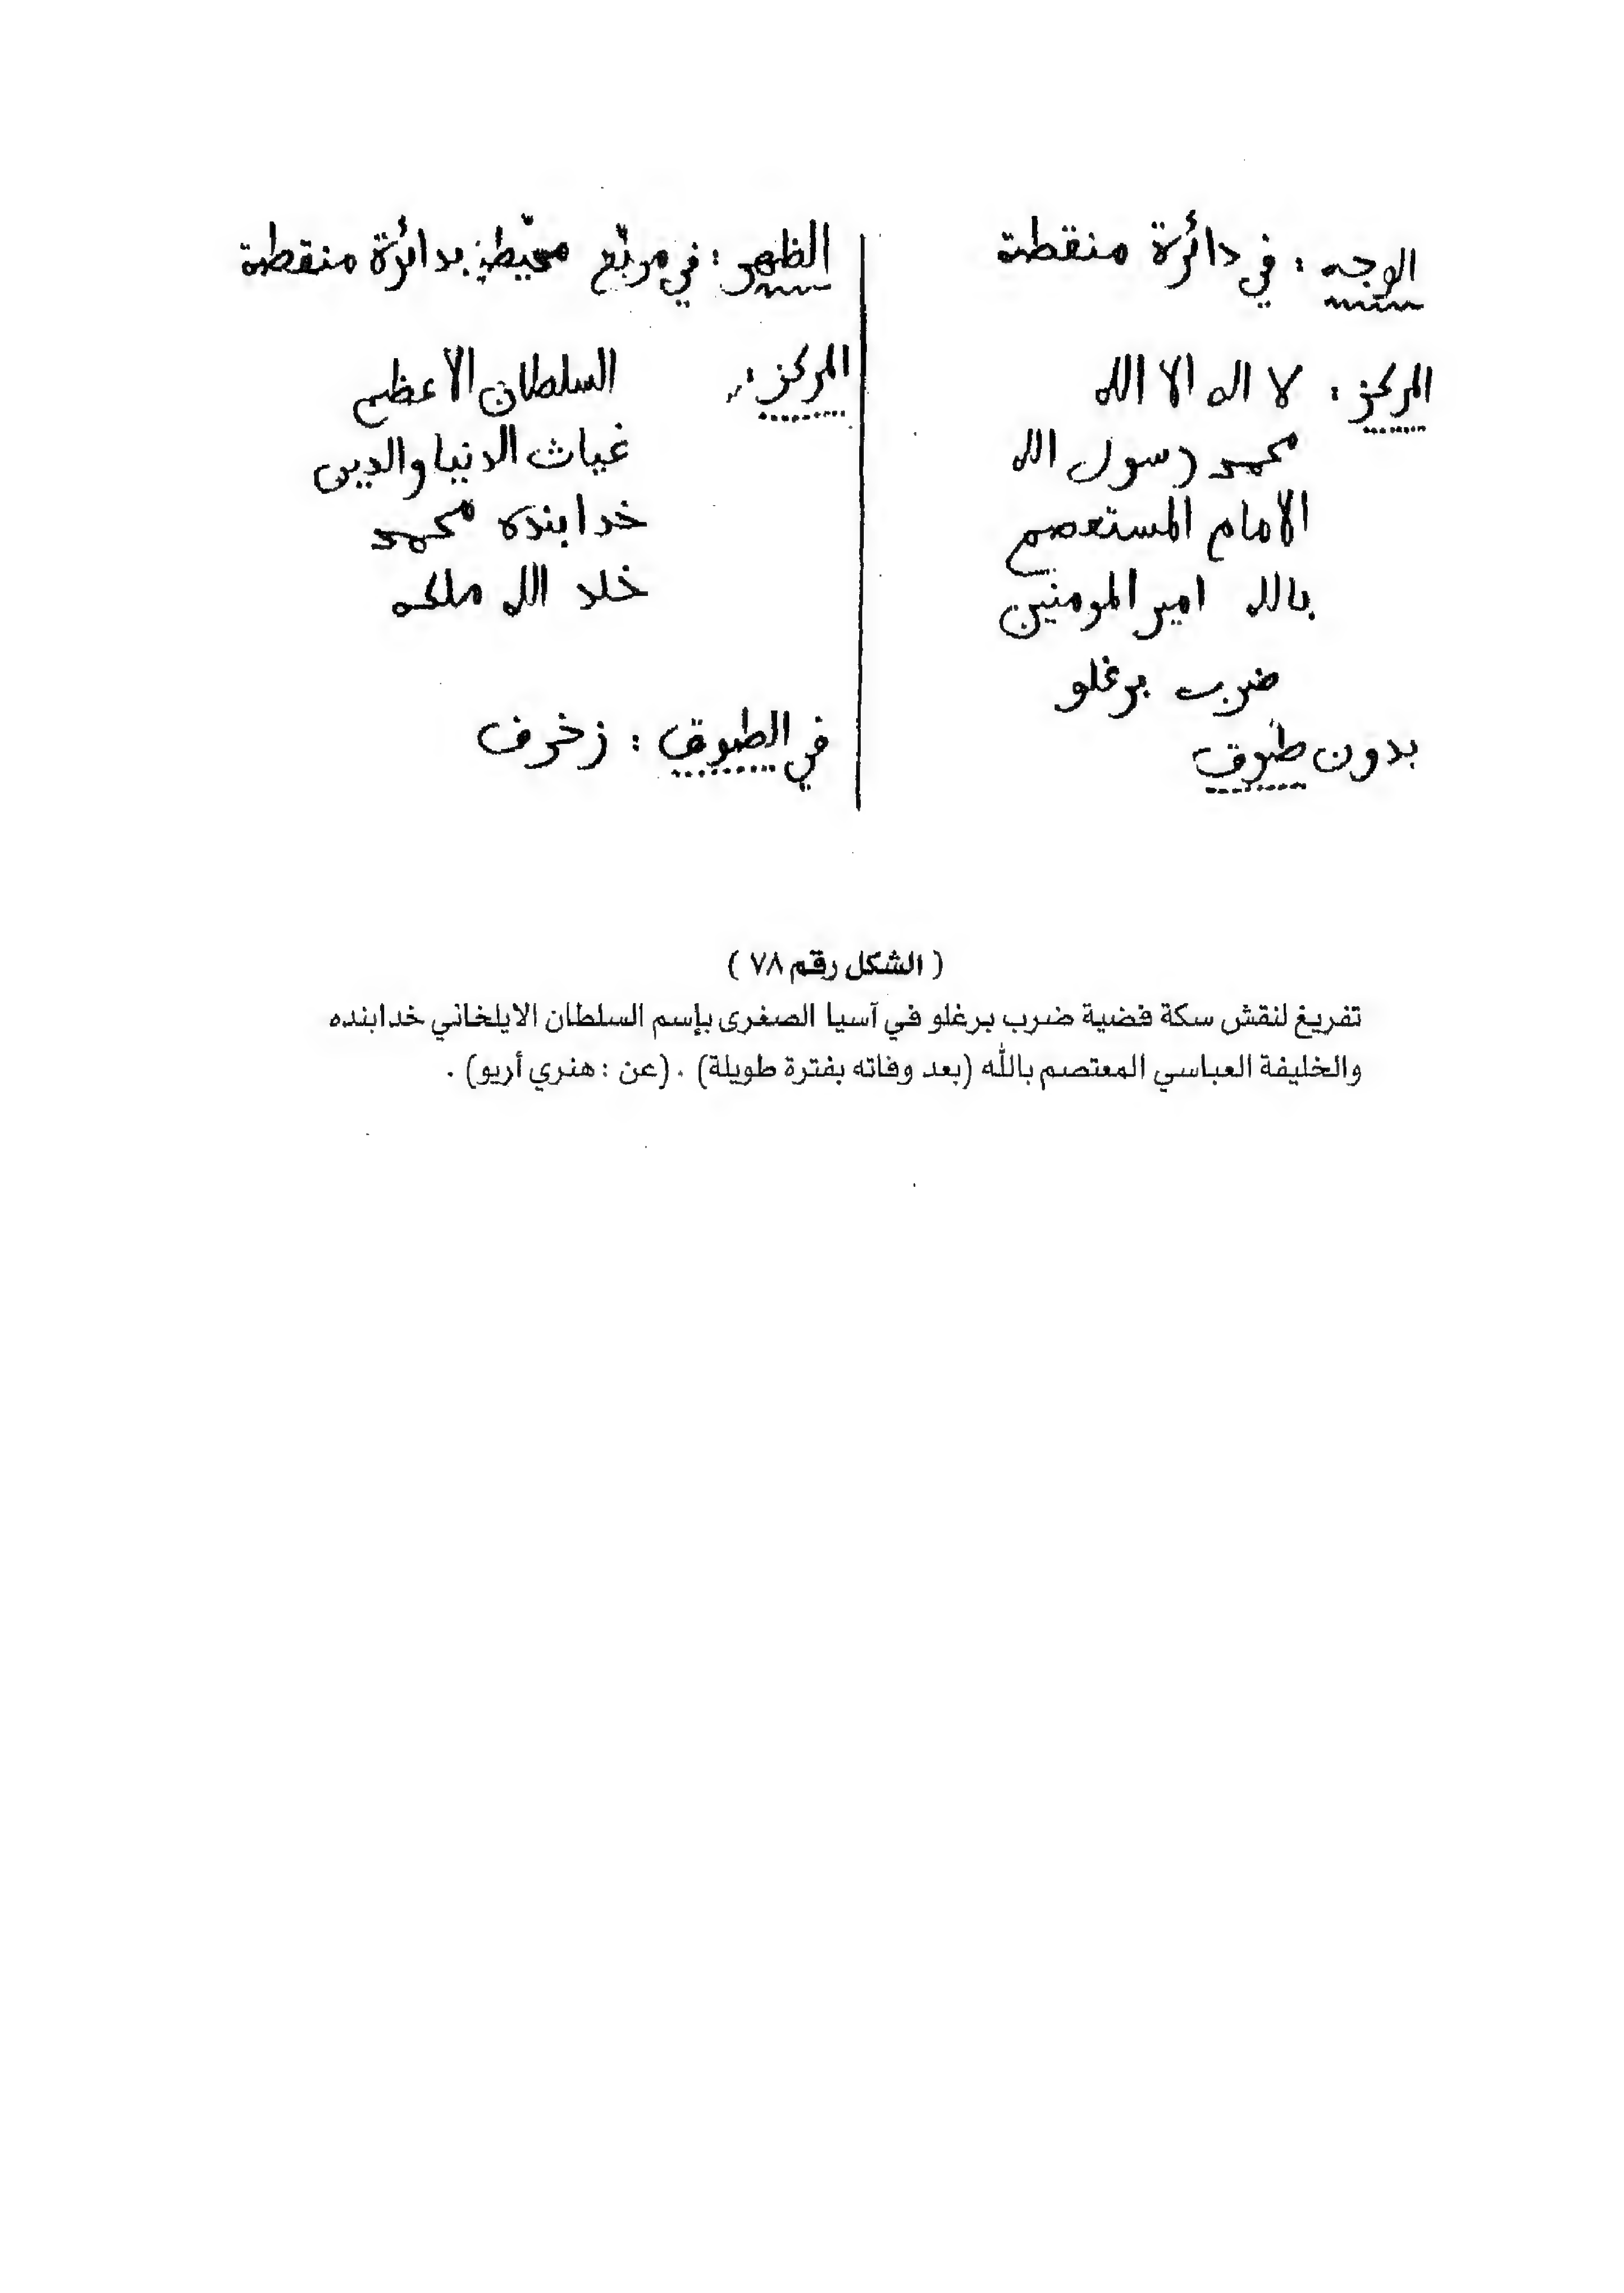 الوجه : في دائرة منقطة
المركز : لا اله الا الله
محمد رسول الله
الامام المستعصم
بالله امير المومنين
ضرب برغلو
بدون طوق
الظهر : في مربّع محيّط بدائرة منقطة
المركز : السلطان الاعظم
غياث الدنيا والدين
خدابنده محمد
خلد الله ملكه
في الطوق : زخرف
( الشكل رقم ٧٨ )
تفريغ لنقش سكة فضية ضرب برغلو في آسيا الصغرى بإسم السلطان الايلخاني خدابنده
والخليفة العباسي المعتصم بالله (بعد وفاته بفترة طويلة) . (عن : هنري أريو) .